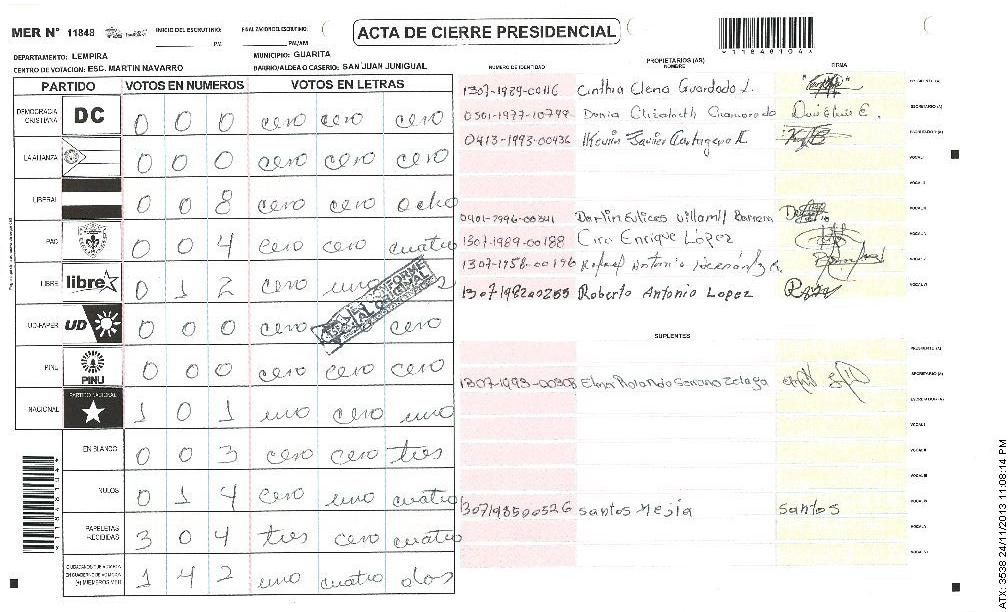 MER N° 11848
INICIO DEL ESCRUTINIO: PM
FINALIZACION DEL ESCRUTINIO: PM/AM
ACTA DE CIERRE PRESIDENCIAL
11848104
DEPARTAMENTO: LEMPIRA
MUNICIPIO: GUARITA
CENTRO DE VOTACION: ESC. MARTIN NAVARRO
BARRIO/ALDEA O CASERIO: SAN JUAN JUNIGUAL
PARTIDO VOTOS EN NUMEROS VOTOS EN LETRAS
DEMOCRACIA CRISTIANA DC 0 0 0 cero cero cero
LA ALIANZA 0 0 0 cero cero cero
LIBERAL 0 0 8 cero cero ocho
PAC 0 0 4 cero cero cuatro
LIBRE libre 0 1 2 cero uno
UD-FAPER UD 0 0 0 cero cero
PINU PINU 0 0 0 cero cero cero
NACIONAL PARTIDO NACIONAL 1 0 1 uno cero uno
EN BLANCO 0 0 3 cero cero tres
NULOS 0 1 4 cero uno cuatro
PAPELETAS RECIBIDAS 3 0 4 tres cero cuatro
1 4 2 uno cuatro dos
CONFORME AL ORIGINAL
PROPIETARIOS (AS)
NUMERO DE IDENTIDAD NOMBRE FIRMA
1307-1989-00116 Cinthia Elena Guardado L.
0501-1977-10799 Dania Elizabeth SECRETARIO (A)
0413-1993-00436 Kevin Javier Cartagena
Darlin Eulices Villamil Barrera
1307-1989-00188 Ciro Enrique López
1307-1958-00196 Rafael Antonio
Roberto Antonio Lopez
SUPLENTES
PRESIDENTE (A)
Elmn Rolando SECRETARIO (A)
1307198500526 Santos Mejia Santos
ATX: 3538 24/11/2013 11:08:14 PM